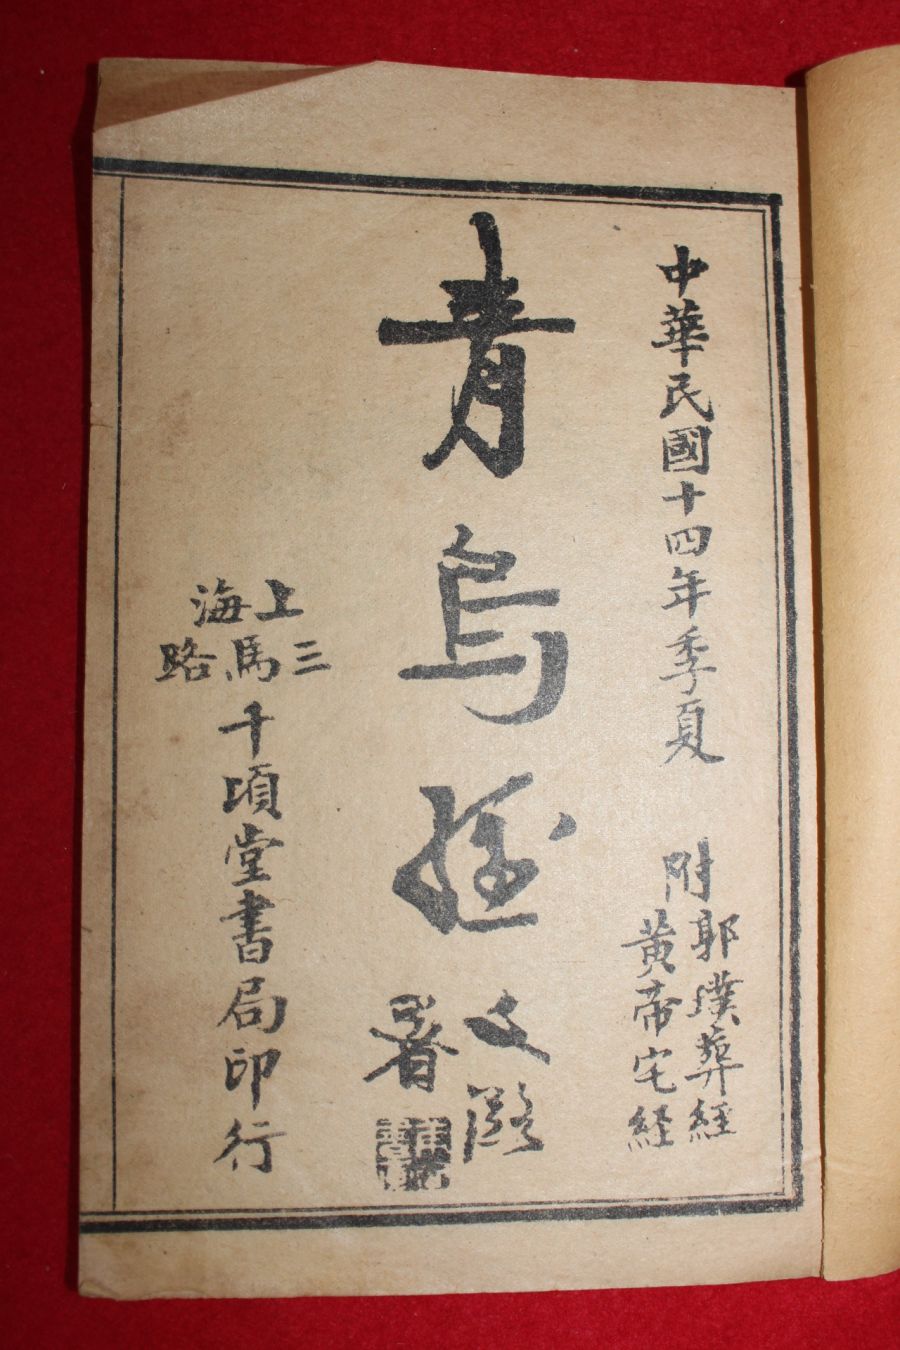 中華民國十四年季夏
附郭璞葬經
黃帝宅経
青烏經
文潞
署
上海
三馬路
千頃堂書局印行